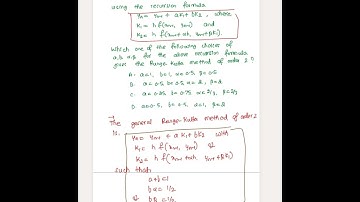 using the recursion formula
yn = yn-1 + ak1 + bk2, where
k1 = h f(xn-1, yn-1) and
k2 = h f(xn-1 + αh, yn-1 + βk1).
Which one of the following choices of
a, b, α, β for the above recursion formula
gives the Runge-Kutta method of order 2?
A. a=1, b=1, α=0.5, β=0.5
B. a=0.5, b=0.5, α=2, β=2
C. a=0.25, b=0.75, α=2/3, β=2/3
D. a=0.5, b=0.5, α=1, β=2
The general Runge-Kutta method of order 2
is,
yn = yn-1 + ak1 + bk2 with
k1 = h f(xn-1, yn-1) &
k2 = h f(xn-1 + αh, yn-1 + βk1)
such that
a+b=1
bα = 1/2
& bβ = 1/2.